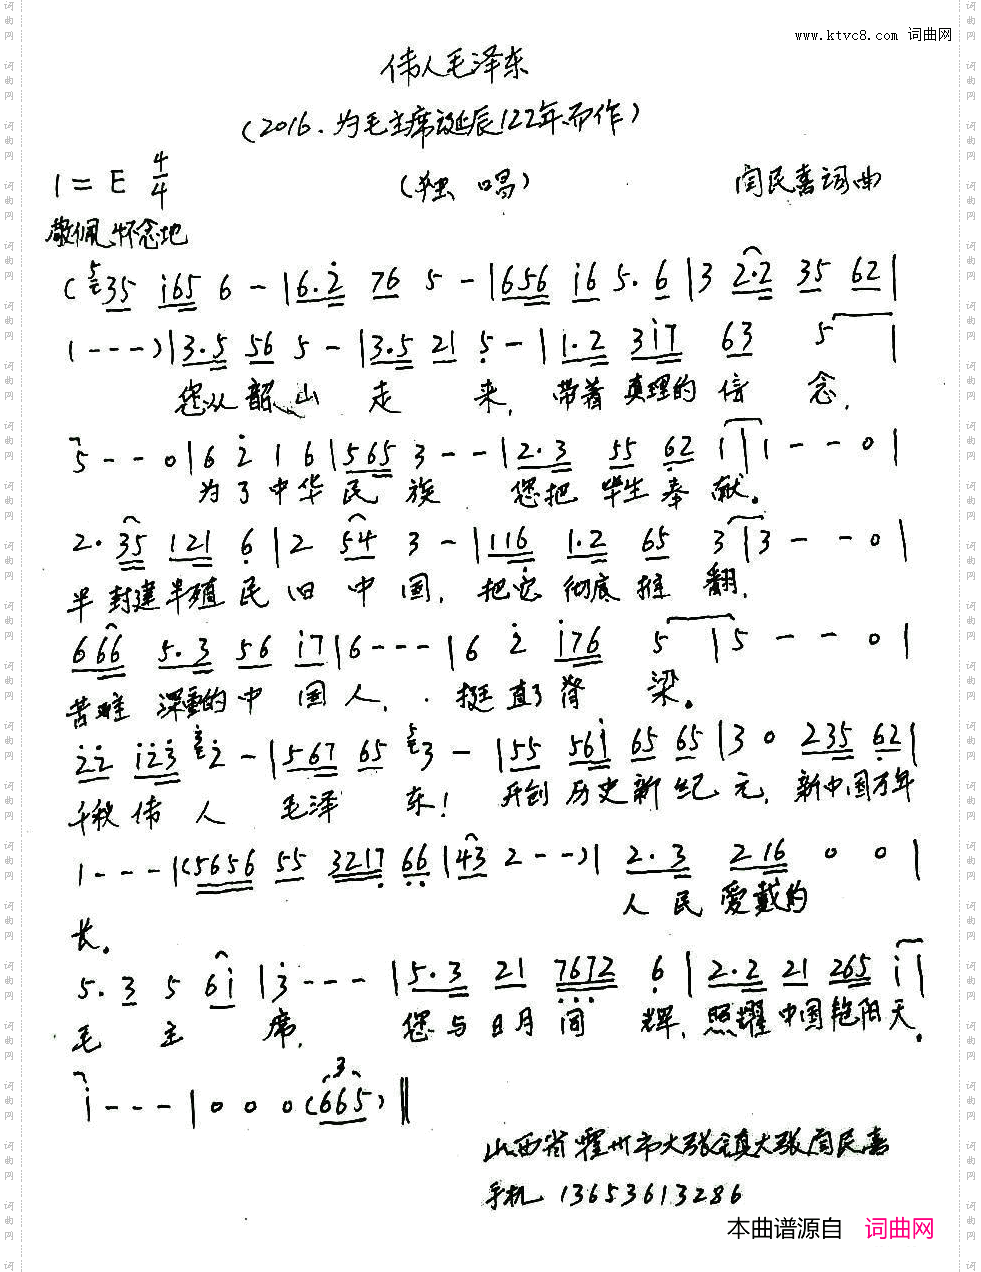 www.ktvc8.com 词曲网
伟人毛泽东
(2016.为毛主席诞辰122年而作)
1=E 4/4 (独唱) 闫民喜词曲
敬佩怀念地
(5 35 i65 6 - | 6.2 76 5 - | 656 i6 5.6 | 3 2.2 35 62 |
1 - - -) | 3.5 56 5 - | 3.5 21 5 - | 1.2 3i7 63 5 |
您从韶山走来,带着真理的信念,
5 - - 0 | 6 2 1 6 | 565 3 - - | 2.3 55 62 1 | 1 - - 0 |
为了中华民族 您把毕生奉献。
2. 35 121 6 | 2 54 3 - | 116 1.2 65 3 | 3 - - 0 |
半封建半殖民旧中国,把它彻底推翻,
666 5.3 56 i7 | 6 - - - | 6 2 i76 5 | 5 - - 0 |
苦难深重的中国人,.挺直了脊梁。
22 i23 3 2 - | 567 65 5 3 - | 55 56i 65 65 | 3 0 235 62 |
千秋伟人毛泽东!开创历史新纪元,新中国万年
1 - - - | (5656 55 3217 66 | 43 2 - -) | 2.3 216 0 0 |
长。 人民爱戴的
5.3 5 6i | 3 - - - | 5.3 21 7672 6 | 2.2 21 265 i |
毛主席,您与日月同辉,照耀中国艳阳天。
i - - - | 0 0 0 (665) ‖
3
山西省霍州市大张镇大张闫民喜
手机 13653613286
本曲谱源自 词曲网